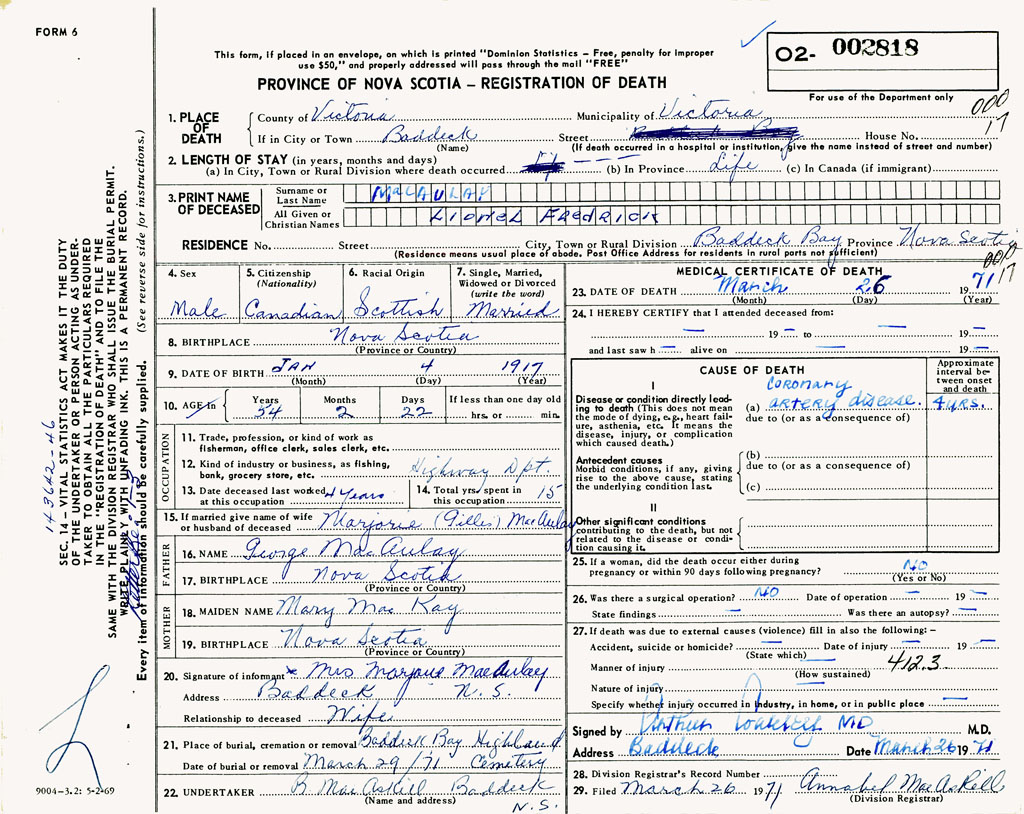 FORM 6
This form, if placed in an envelope, on which is printed "Dominion Statistics – Free, penalty for improper
use $50," and properly addressed will pass through the mail "FREE"
PROVINCE OF NOVA SCOTIA – REGISTRATION OF DEATH
O2- 002818
For use of the Department only
000
17
1. PLACE OF DEATH
County of Victoria Municipality of Victoria
If in City or Town Baddeck Street House No.
(Name) (If death occurred in a hospital or institution, give the name instead of street and number)
2. LENGTH OF STAY (in years, months and days)
(a) In City, Town or Rural Division where death occurred (b) In Province Life (c) In Canada (if immigrant)
3. PRINT NAME OF DECEASED
Surname or Last Name MacAULAY
All Given or Christian Names LIONEL FREDRICK
RESIDENCE No. Street City, Town or Rural Division Baddeck Bay Province Nova Scotia
(Residence means usual place of abode. Post Office Address for residents in rural ports not sufficient)
000
17
4. Sex
Male
5. Citizenship (Nationality)
Canadian
6. Racial Origin
Scottish
7. Single, Married, Widowed or Divorced (write the word)
Married
8. BIRTHPLACE Nova Scotia
(Province or Country)
9. DATE OF BIRTH JAN 4 1917
(Month) (Day) (Year)
10. AGE in Years Months Days If less than one day old
54 2 22 hrs. or min.
OCCUPATION
11. Trade, profession, or kind of work as
fisherman, office clerk, sales clerk, etc.
12. Kind of industry or business, as fishing,
bank, grocery store, etc. Highway Dpt.
13. Date deceased last worked at this occupation 4 years
14. Total yrs. spent in this occupation 15
15. If married give name of wife
or husband of deceased Marjorie (Gillis) MacAulay
FATHER
16. NAME George MacAulay
17. BIRTHPLACE Nova Scotia
(Province or Country)
MOTHER
18. MAIDEN NAME Mary Mac Kay
19. BIRTHPLACE Nova Scotia
(Province or Country)
20. Signature of informant Mrs Marjorie MacAulay
Address Baddeck N. S.
Relationship to deceased Wife
21. Place of burial, cremation or removal Baddeck Bay Highland
Date of burial or removal March 29/71 Cemetery
22. UNDERTAKER R. MacAskill Baddeck
(Name and address) N.S.
MEDICAL CERTIFICATE OF DEATH
23. DATE OF DEATH March 26 1971
(Month) (Day) (Year)
24. I HEREBY CERTIFY that I attended deceased from:
19 – to – 19 –
and last saw h – alive on – 19 –
CAUSE OF DEATH
Approximate interval between onset and death
I
Disease or condition directly leading
to death (This does not mean
the mode of dying, e.g., heart failure,
asthenia, etc. It means the
disease, injury, or complication
which caused death.)
(a) coronary artery disease. 4 yrs.
due to (or as a consequence of)
Antecedent causes
Morbid conditions, if any, giving
rise to the above cause, stating
the underlying condition last.
(b)
due to (or as a consequence of)
(c)
II
Other significant conditions
contributing to the death, but not
related to the disease or condition
causing it.
25. If a woman, did the death occur either during
pregnancy or within 90 days following pregnancy? NO
(Yes or No)
26. Was there a surgical operation? NO Date of operation – 19 –
State findings – Was there an autopsy? –
27. If death was due to external causes (violence) fill in also the following: –
Accident, suicide or homicide? – Date of injury – 19 –
(State which)
Manner of injury 412.3
(How sustained)
Nature of injury
Specify whether injury occurred in industry, in home, or in public place –
Signed by MD M.D.
Address Baddeck Date March 26 1971
28. Division Registrar's Record Number
29. Filed March 26 1971 Annabel MacAskill
(Division Registrar)
143642-46
SEC. 14 – VITAL STATISTICS ACT MAKES IT THE DUTY
OF THE UNDERTAKER OR PERSON ACTING AS UNDERTAKER
TO OBTAIN ALL THE PARTICULARS REQUIRED
IN THE "REGISTRATION OF DEATH" AND TO FILE THE
SAME WITH THE DIVISION REGISTRAR WHO SHALL ISSUE THE BURIAL PERMIT.
WRITE PLAINLY WITH UNFADING INK. THIS IS A PERMANENT RECORD.
Every item of information should be carefully supplied. (See reverse side for instructions.)
9004–3.2: 5-2-69